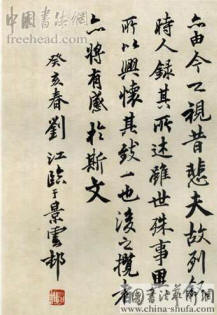 中国書法網
freehead.com
亦由今之視昔悲夫故列敘
時人錄其所述雖世殊事異
所以興懷其致一也後之攬者
亦將有感於斯文
癸亥春劉江臨于景雲邨
www.china-shufa.com